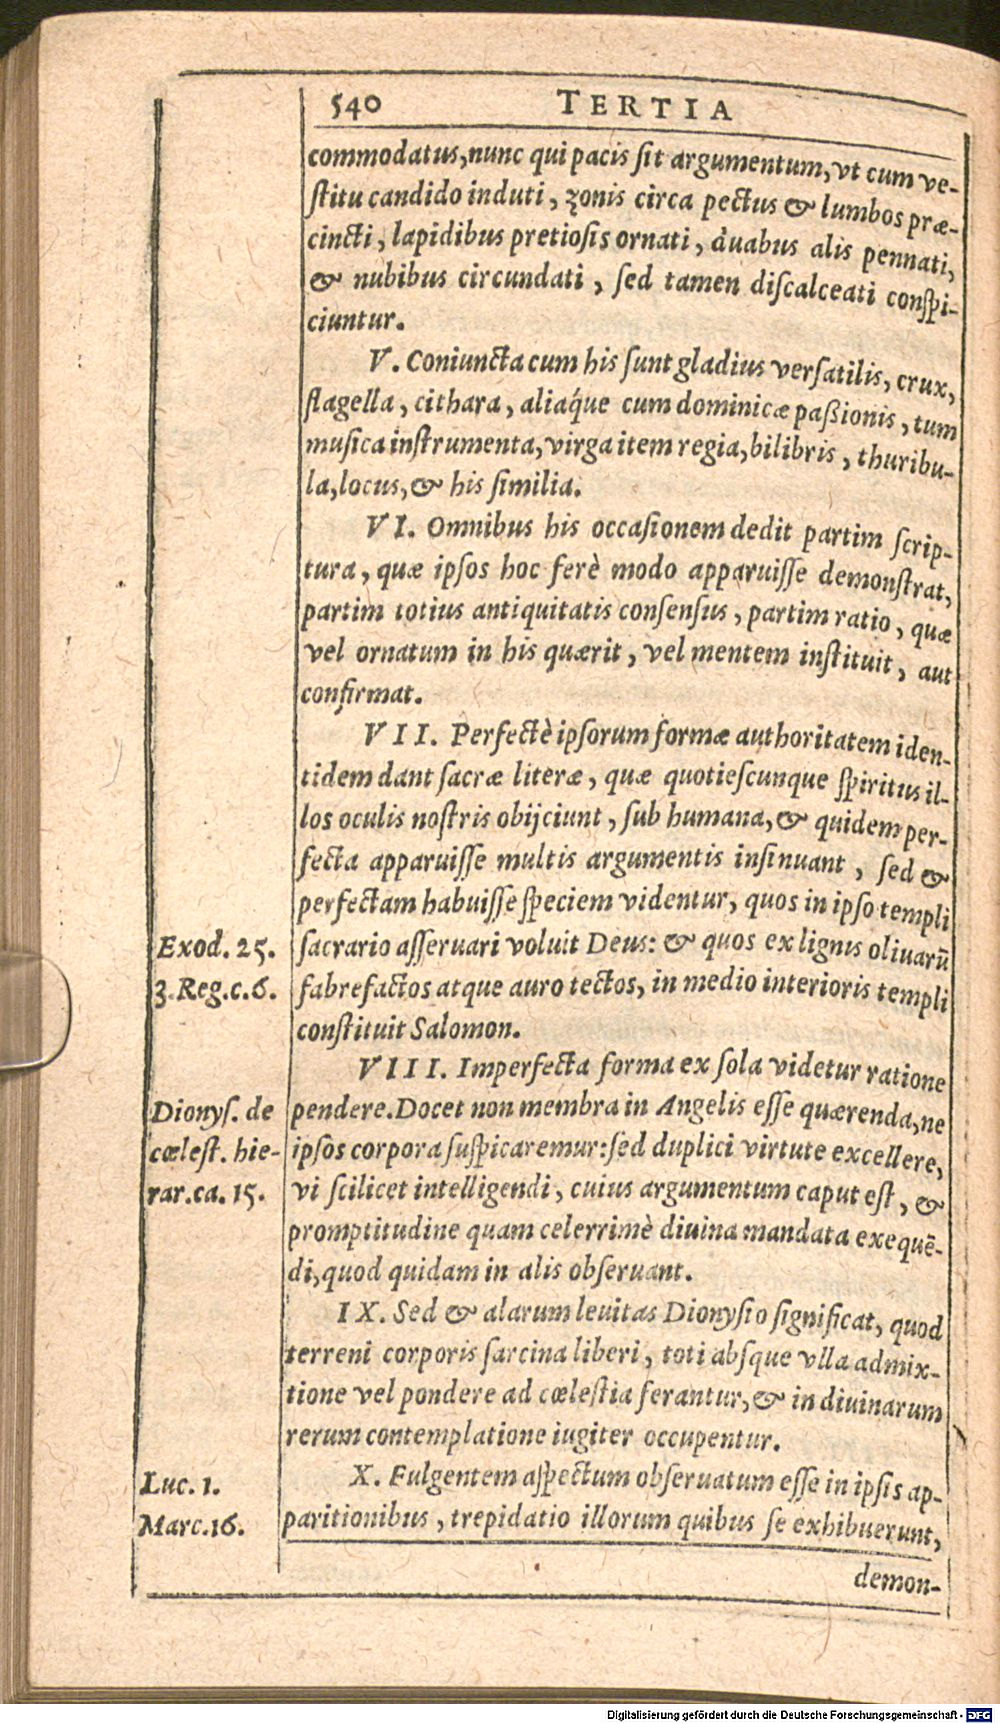 540 TERTIA
commodatus, nunc qui pacis sit argumentum, vt cum ve-
stitu candido induti, zonis circa pectus & lumbos præ-
cincti, lapidibus pretiosis ornati, duabus alis pennati,
& nubibus circundati, sed tamen discalceati conspi-
ciuntur.
V. Coniuncta cum his sunt gladius versatilis, crux,
flagella, cithara, aliaq́ue cum dominicæ paßionis, tum
musica instrumenta, virga item regia, bilibris, thuribu-
la, locus, & his similia.
VI. Omnibus his occasionem dedit partim scrip-
tura, quæ ipsos hoc ferè modo apparuisse demonstrat,
partim totius antiquitatis consensus, partim ratio, quæ
vel ornatum in his quærit, vel mentem instituit, aut
confirmat.
VII. Perfectè ipsorum formæ authoritatem iden-
tidem dant sacræ literæ, quæ quotiescunque spiritus il-
los oculis nostris obijciunt, sub humana, & quidem per-
fecta apparuisse multis argumentis insinuant, sed &
perfectam habuisse speciem videntur, quos in ipso templi
Exod. 25. sacrario asseruari voluit Deus: & quos ex lignis oliuarū
3. Reg. c. 6. fabrefactos atque auro tectos, in medio interioris templi
constituit Salomon.
VIII. Imperfecta forma ex sola videtur ratione
Dionys. de pendere. Docet non membra in Angelis esse quærenda, ne
cœlest. hie- ipsos corpora suspicaremur: sed duplici virtute excellere,
rar. ca. 15. vi scilicet intelligendi, cuius argumentum caput est, &
promptitudine quam celerrimè diuina mandata exequē-
di, quod quidam in alis obseruant.
IX. Sed & alarum leuitas Dionysio significat, quod
terreni corporis sarcina liberi, toti absque vlla admix-
tione vel pondere ad cœlestia ferantur, & in diuinarum
rerum contemplatione iugiter occupentur.
Luc. 1. X. Fulgentem aspectum obseruatum esse in ipsis ap-
Marc. 16. paritionibus, trepidatio illorum quibus se exhibuerunt,
demon-
Digitalisierung gefördert durch die Deutsche Forschungsgemeinschaft - DFG